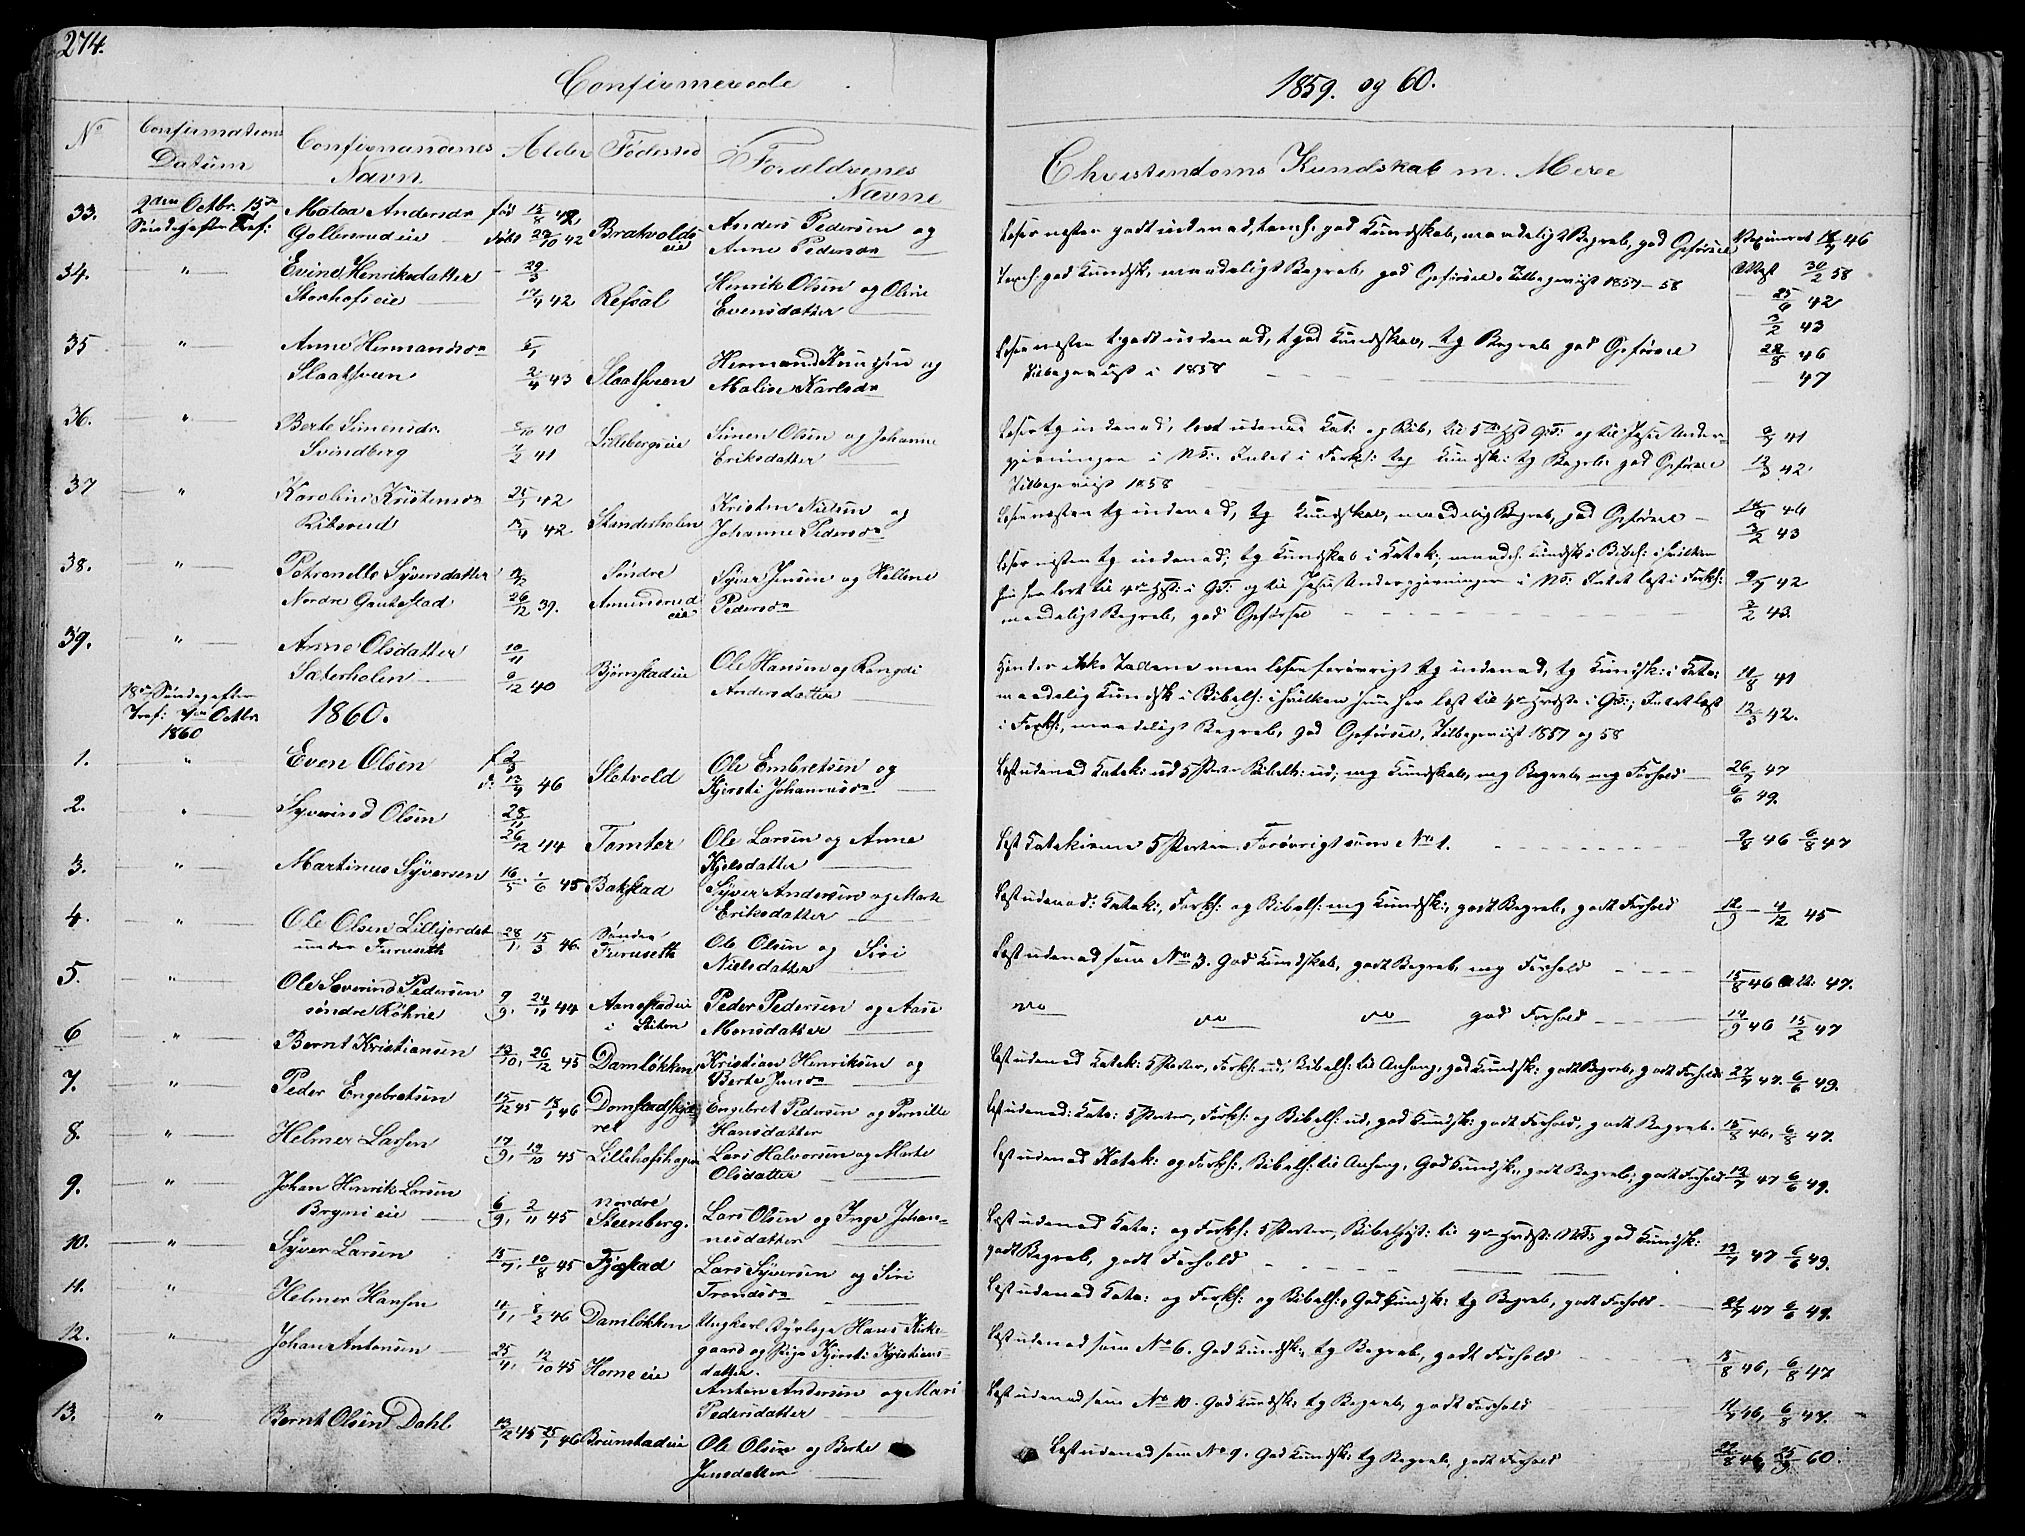 274.
Confirmerede
1859. og 60.
No
Confirmations Datum
Confirmandenes Navn
Alder
Fødested
Forældrenes Navne
Christendoms Kundskab m. Mere
33.
2den Octbr. 15de
Søndag efter Tref:
Andersdr
født 15/8 42
døbt 42
Bratvolds eie
Anders Pedersen og
Anne Pedersdr
Læser nesten godt indenad, god Kundskab, maadeligt Begreb, god Opførsel
46
34.
"
Evine Henriksdatter
Storhofs eie
29/3
17/4 42
Refsal
Henrik Olsen og Oline
Evensdatter
god Kundsk, maadeligt Begreb, god Opførsel. Tilbageviist 1857-58
30/2 58
25/6 42
3/2 43
35
"
Anne Hermandsdr
Slaatsveen
2/4 43
Slaatsveen
Hermand Knudsen og
Malene Karlsdr
Læser nesten tg godt indenad, tg god Kundskab, tg Begreb god Opførsel
Tilbageviist i 1858
28/8 46
47
36.
"
Berte Simensdr.
Svindberg
40
2 41
Lillebergs eie
Simen Olsen og Johanne
Eriksdatter
Læser tg indenad, lært udenad Kat: og Bib. til
i N.T. Intet i Forkl: tg Kundsk: tg Begreb god Opførsel
Tilbageviist 1858
41
12/3 42
37
"
Karoline Kristensdr
Ribsrud
25/1 42
42
Stenderholen
Kristen Nielsen og
Johanne Pedersdr
Læser nesten tg indenad, tg Kundskab, maadelig Begreb, god Opførsel
46
3/2 43
38.
"
Petronelle Syversdatter
Nordre Gautestad
26/12 39.
Søndre
Amundsrud
eie
Syver Jensen og Hellene
Pedersdr
Læser nesten tg indenad; tg Kundskab i Katek:, maad: Kundsk i Bibel: i hvilken
hun har lært til
maadeligt Begreb, god Opførsel
42
3/2 43
39.
"
Anne Olsdatter
Sæterholen
10/11
9/12 40
Bjørnstad eie
Ole Hansen og Rangdi
Andersdatter
Kjender ikke Tallene men læser forøvrigt tg indenad, tg Kundsk: i Kata:
maadelig Kundsk i Bibelh: i hvilken hun har læst til
i Forkl:, maadeligt Begreb, god Opførsel, Tilbageviist 1857 og 58
11/8 41
12/3 42.
18de Søndag efter
Tref: Octbr
1860
1860.
1.
"
Even Olsen
f. 2/3
d. 13/4 46
Sletvold
Ole Embretsen og
Kjersti Johannesdr
Læst udenad Katek: ud 5 Parter Bibelh: ud; mg Kundskab, mg Begreb, mg Forhold
26/7 47
6/6 49.
2.
"
Syverind Olsen
28/11
26/12 44
Tomter
Ole Larsen og Anne
Kjelsdatter
Læst Catekismen 5 Parter. Forøvrigt som No 1.
9/8 46 6/8 47
3.
"
Martinus Syversen
16/5. 1/6 45
Bakstad
Syver Andersen og Marte
Eriksdatter
Læst udenad: Katek:, Forkl: og Bibelh: mg Kundsk:, godt Begreb, godt Forhold
12/9 - 4/12 45
4.
"
Ole Olsen Lillejordet
under Furuseth
28/1, 15/3 46
Søndre
Furuseth
Ole Olsen og Siri
Nielsdatter
Læst udenad som No 3. God Kundskab, godt Begreb, mg Forhold
15/8 46 47.
5.
"
Ole Severind Pedersen
søndre Røhne
9/9. 24/11 44
Aanestad eie
i Løiten
Peder Pedersen og Aase
Monsdatter
do do do god Forhold
14/9 46 15/2 47
6
"
Bernt Kristiansen
13/10, 26/12 45
Damløkken
Kristian Henriksen og
Berte Jensdr
Læst udenad Katek: 5 Parter, Forkl: ud, Bibelh: til Anhang, god Kundsk: godt Begreb, godt Forhold
27/7 47. 6/6 49.
7.
"
Peder Engebretsen
15/12 45 13/1 46
Engebret Pedersen og Pernille
Hansdatter
Læst udenad: Kata: 5 Parter, Forkl: og Bibelh: ud, god Kundsk: godt Forhold, godt Begreb.
15/8 46, 6/8 47.
8.
"
Helmer Larsen
17/9, 19/10 45
Lillehofshagen
Lars Halvorsen og Marte
Olsdatter
Læst udenad Katek: og Forkl:, Bibelh: til Anhang, God Kundsk:, godt Begreb, godt Forhold
12/7 47 6/6 49.
9.
"
Johan Henrik Larsen
Bryni eie
6/9, 2/11 45
Nordre
Steenberg.
Lars Olsen og Inge Johan-
nesdatter
Læst udenad Kata: og Forkl: 5 Parter, Bibelhist: til N.T: god Kundsk:
godt Begreb, godt Forhold
13/7 47 6/6 49.
10.
"
Syver Larsen
15/7, 10/8 45
Fjæstad
Lars Syversen og Siri
Trondsdr
Læst udenad Kata: og Forkl: og Bibelh:, God Kundsk: tg Begreb, godt Forhold
47 6/6 49.
11.
"
Helmer Hansen
11/1, 8/2 46
Damløkken
Ungkarl Dyrlæge Hans Kirke-
gaard og Pige Kjersti Kristians-
datter.
Læst udenad som No 6. God Kundsk:, tg Begreb, godt Forhold
15/8 46, 6/8 47
12.
"
Johan Antonsen
25/4, 12/10 45
Horne eie
Anton Andersen og Mari
Pedersdatter
Læst udenad som No 10. God Kundsk: tg Begreb, godt Forhold
46, 6/8 47.
13.
"
Bernt Olsen Dahl
13/12 45 25/1 46
Brunstad eie
Ole Olsen og Berte
Jensdatter
Læst udenad som No 9. God Kundsk: tg Begreb, godt Forhold
22/8 46, 25/9 60.